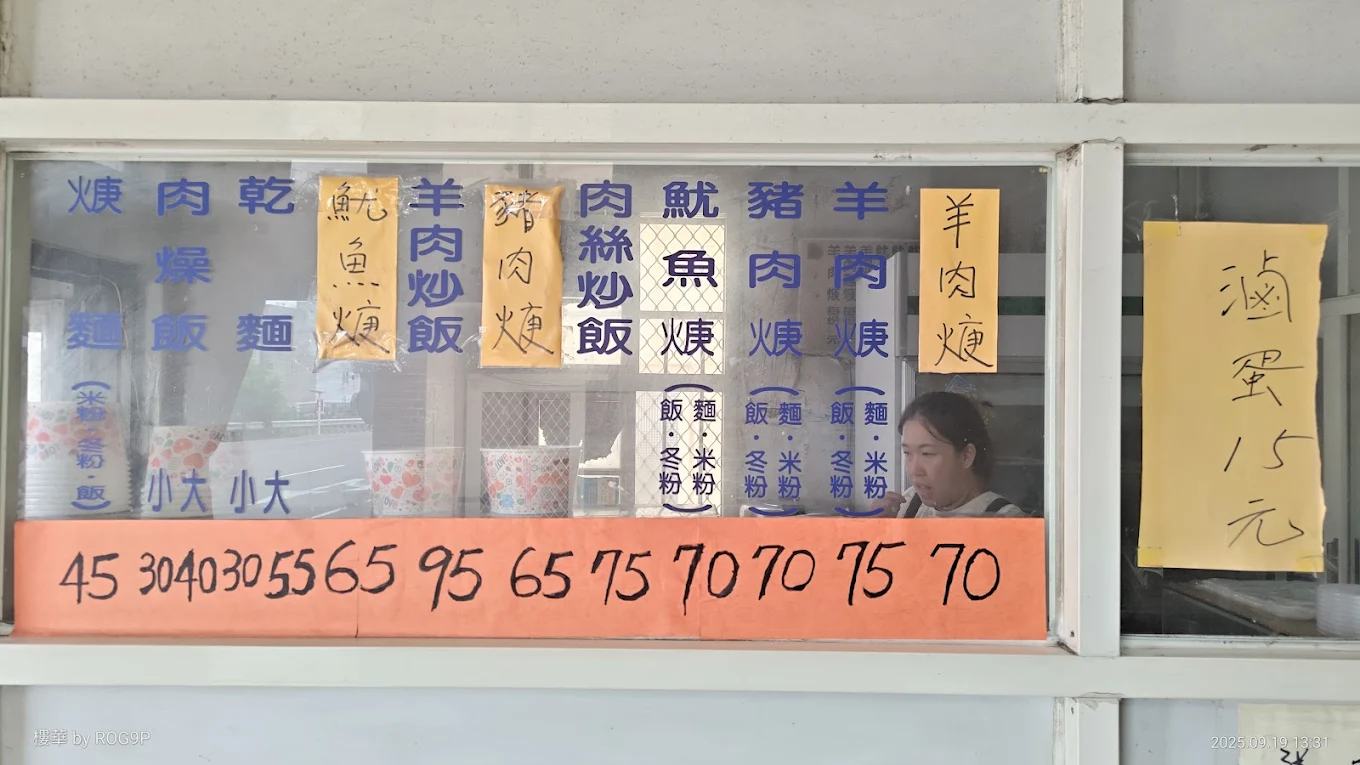 羊肉焿
羊肉焿(麵・米粉飯・冬粉)
豬肉焿(麵・米粉飯・冬粉)
魷魚焿(麵・米粉飯・冬粉)
肉絲炒飯
豬肉焿
羊肉炒飯
魷魚焿
乾麵 小大
肉燥飯 小大
焿麵(米粉・冬粉・飯)
45 30 40 30 55 65 95 65 75 70 70 75 70
滷蛋15元
櫻華 by ROG9P
2025.09.19 13:31